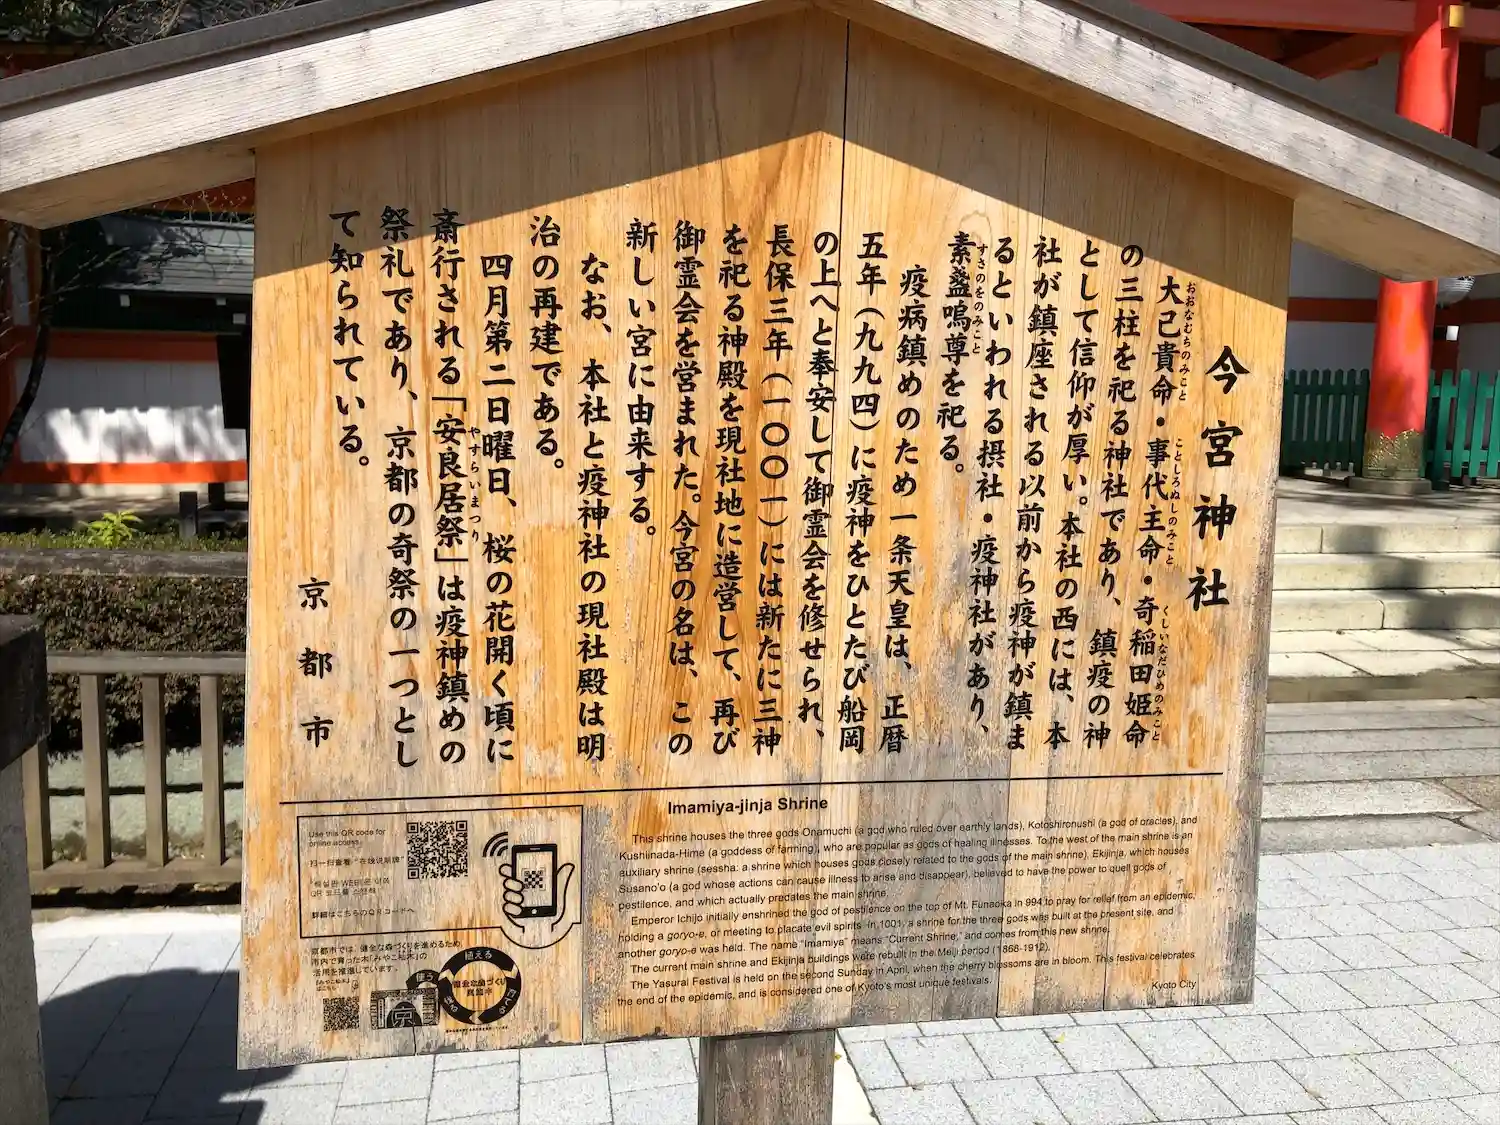 今宮神社
大己貴命・事代主命・奇稲田姫命
おおなむちのみこと
ことしろぬしのみこと
くしいなだひめのみこと
の三柱を祀る神社であり、鎮疫の神
として信仰が厚い。本社の西には、本
社が鎮座される以前から疫神が鎮ま
るといわれる摂社・疫神社があり、
素盞嗚尊を祀る。
すさのをのみこと
疫病鎮めのため一条天皇は、正暦
五年（九九四）に疫神をひとたび船岡
の上へと奉安して御霊会を修せられ、
長保三年（一〇〇一）には新たに三神
を祀る神殿を現社地に造営して、再び
御霊会を営まれた。今宮の名は、この
新しい宮に由来する。
なお、本社と疫神社の現社殿は明
治の再建である。
四月第二日曜日、桜の花開く頃に
斎行される「安良居祭」は疫神鎮めの
やすらいまつり
祭礼であり、京都の奇祭の一つとし
て知られている。
京都市
Imamiya-jinja Shrine
This shrine houses the three gods Onamuchi (a god who ruled over earthly lands), Kotoshironushi (a god of oracles), and
Kushiinada-Hime (a goddess of farming), who are popular as gods of healing illnesses. To the west of the main shrine is an
auxiliary shrine (sessha: a shrine which houses gods closely related to the gods of the main shrine), Ekijinja, which houses
Susano'o (a god whose actions can cause illness to arise and disappear), believed to have the power to quell gods of
pestilence, and which actually predates the main shrine.
Emperor Ichijo initially enshrined the god of pestilence on the top of Mt. Funaoka in 994 to pray for relief from an epidemic,
holding a goryo-e, or meeting to placate evil spirits. In 1001, a shrine for the three gods was built at the present site, and
another goryo-e was held. The name "Imamiya" means "Current Shrine," and comes from this new shrine.
The current main shrine and Ekijinja buildings were rebuilt in the Meiji period (1868-1912).
The Yasurai Festival is held on the second Sunday in April, when the cherry blossoms are in bloom. This festival celebrates
the end of the epidemic, and is considered one of Kyoto's most unique festivals.
Kyoto City
Use this QR code for
online access.
扫一扫查看"在线说明牌"
詳細はこちらのQRコードへ
京都市では、健全な森づくりを進めるため、
市内で育った木「みやこ杣木」の
活用を推進しています。
植える
使う
京